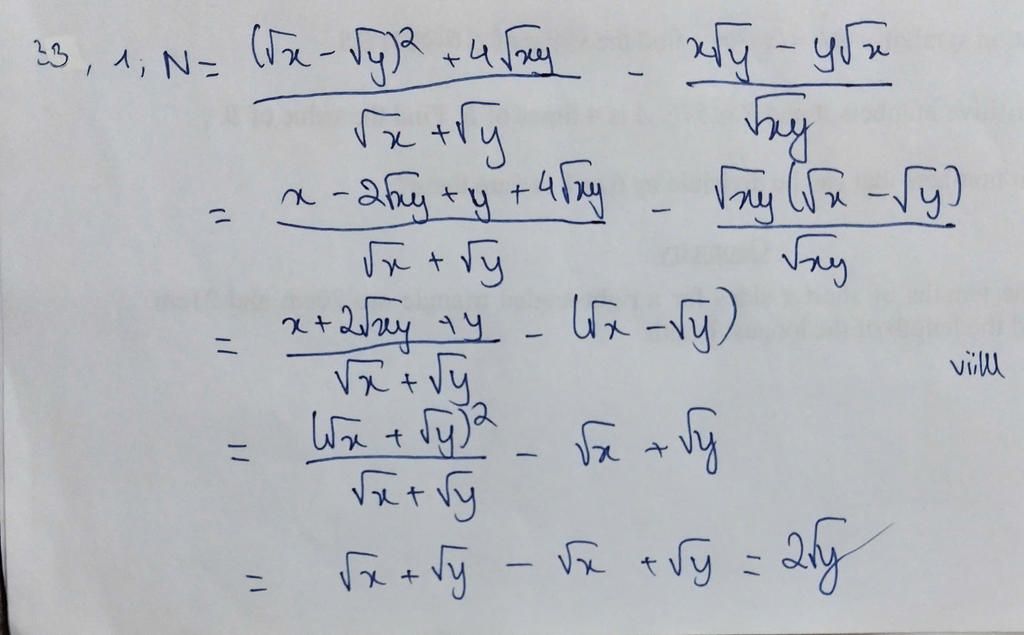 33, 1, N = \frac{(\sqrt{x} - \sqrt{y})^2 + 4\sqrt{xy}}{\sqrt{x} + \sqrt{y}} - \frac{x\sqrt{y} - y\sqrt{x}}{\sqrt{xy}}
= \frac{x - 2\sqrt{xy} + y + 4\sqrt{xy}}{\sqrt{x} + \sqrt{y}} - \frac{\sqrt{xy}(\sqrt{x} - \sqrt{y})}{\sqrt{xy}}
= \frac{x + 2\sqrt{xy} + y}{\sqrt{x} + \sqrt{y}} - (\sqrt{x} - \sqrt{y})
= \frac{(\sqrt{x} + \sqrt{y})^2}{\sqrt{x} + \sqrt{y}} - \sqrt{x} + \sqrt{y}
= \sqrt{x} + \sqrt{y} - \sqrt{x} + \sqrt{y} = 2\sqrt{y}